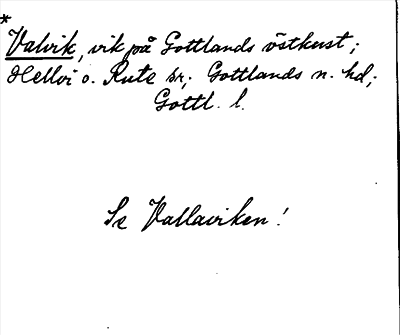 *
Valvik, vik på Gottlands östkust;
Hellvi o. Rute sr; Gottlands n. hd;
Gottl. l.
Se Vallaviken!